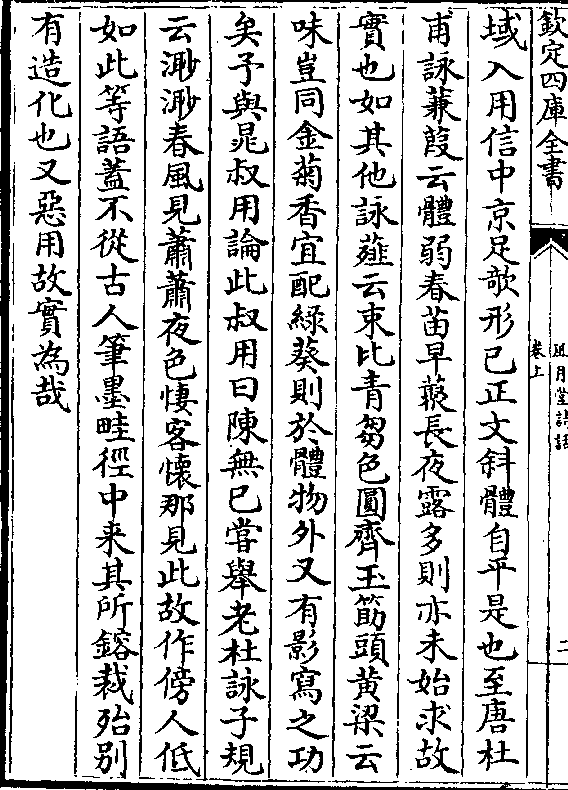 欽定四庫全書
風月堂詩話
卷上
二
域入用信中京足欹形已正文斜體自平是也至唐杜
甫詠蒹葭云體弱春苗早蘂長夜露多則亦未始求故
實也如其他詠薤云束比青芻色圓齊玉筯頭黃梁云
味豈同金菊香宜配綠葵則於體物外又有影寫之功
矣予與晁叔用論此叔用曰陳無已嘗舉老杜詠子規
云渺渺春風見蕭蕭夜色悽客懷那見此故作傍人低
如此等語蓋不從古人筆墨畦徑中来其所鎔裁殆別
有造化也又惡用故實為哉